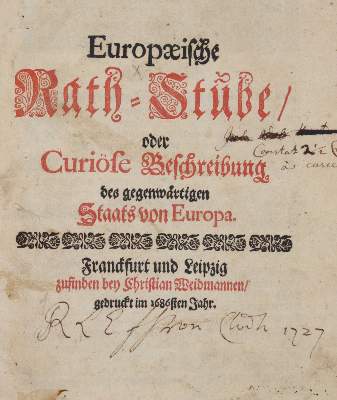 Europæische
Rath-Stůbe/
oder
Curiöse Beschreibung
des gegenwärtigen
Staats von Europa.
Franckfurt und Leipzig
zufinden bey Christian Weidmannen/
gedruckt im 1686sten Jahr.
1727